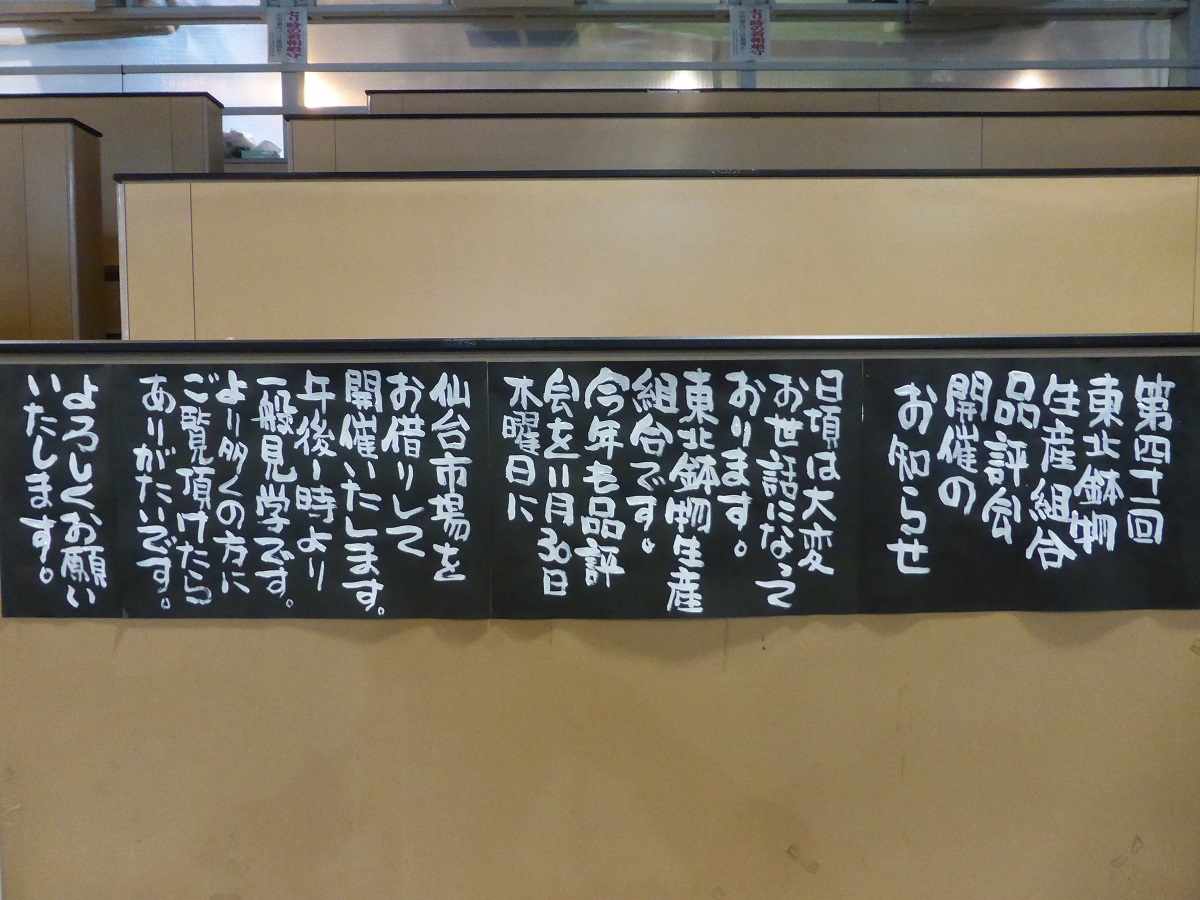 第四十一回
東北鉢物
生産組合
品評会
開催の
お知らせ
日頃は大変
お世話になって
おります。
東北鉢物生産
組合です。
今年も品評
会を11月30日
木曜日に
仙台市場を
お借りして
開催いたします。
午後1時より
一般見学です。
より多くの方に
ご覧頂けたら
ありがたいです。
よろしくお願い
いたします。